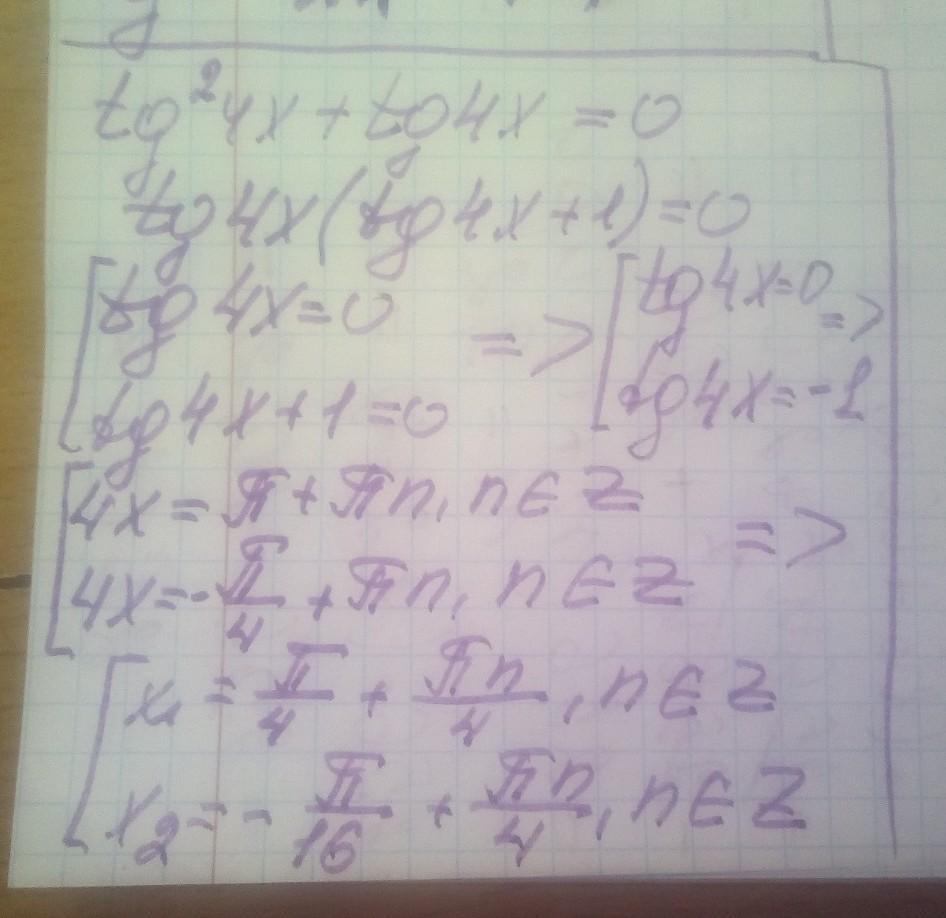 tg²4x + tg4x = 0
tg4x(tg4x+1)=0
[tg4x=0 => [tg4x=0 =>
[tg4x+1=0 [tg4x=-1
[4x=π+πn, n∈Z =>
[4x=-π/4+πn, n∈Z
[x₁=π/4+πn/4, n∈Z
[x₂=-π/16+πn/4, n∈Z